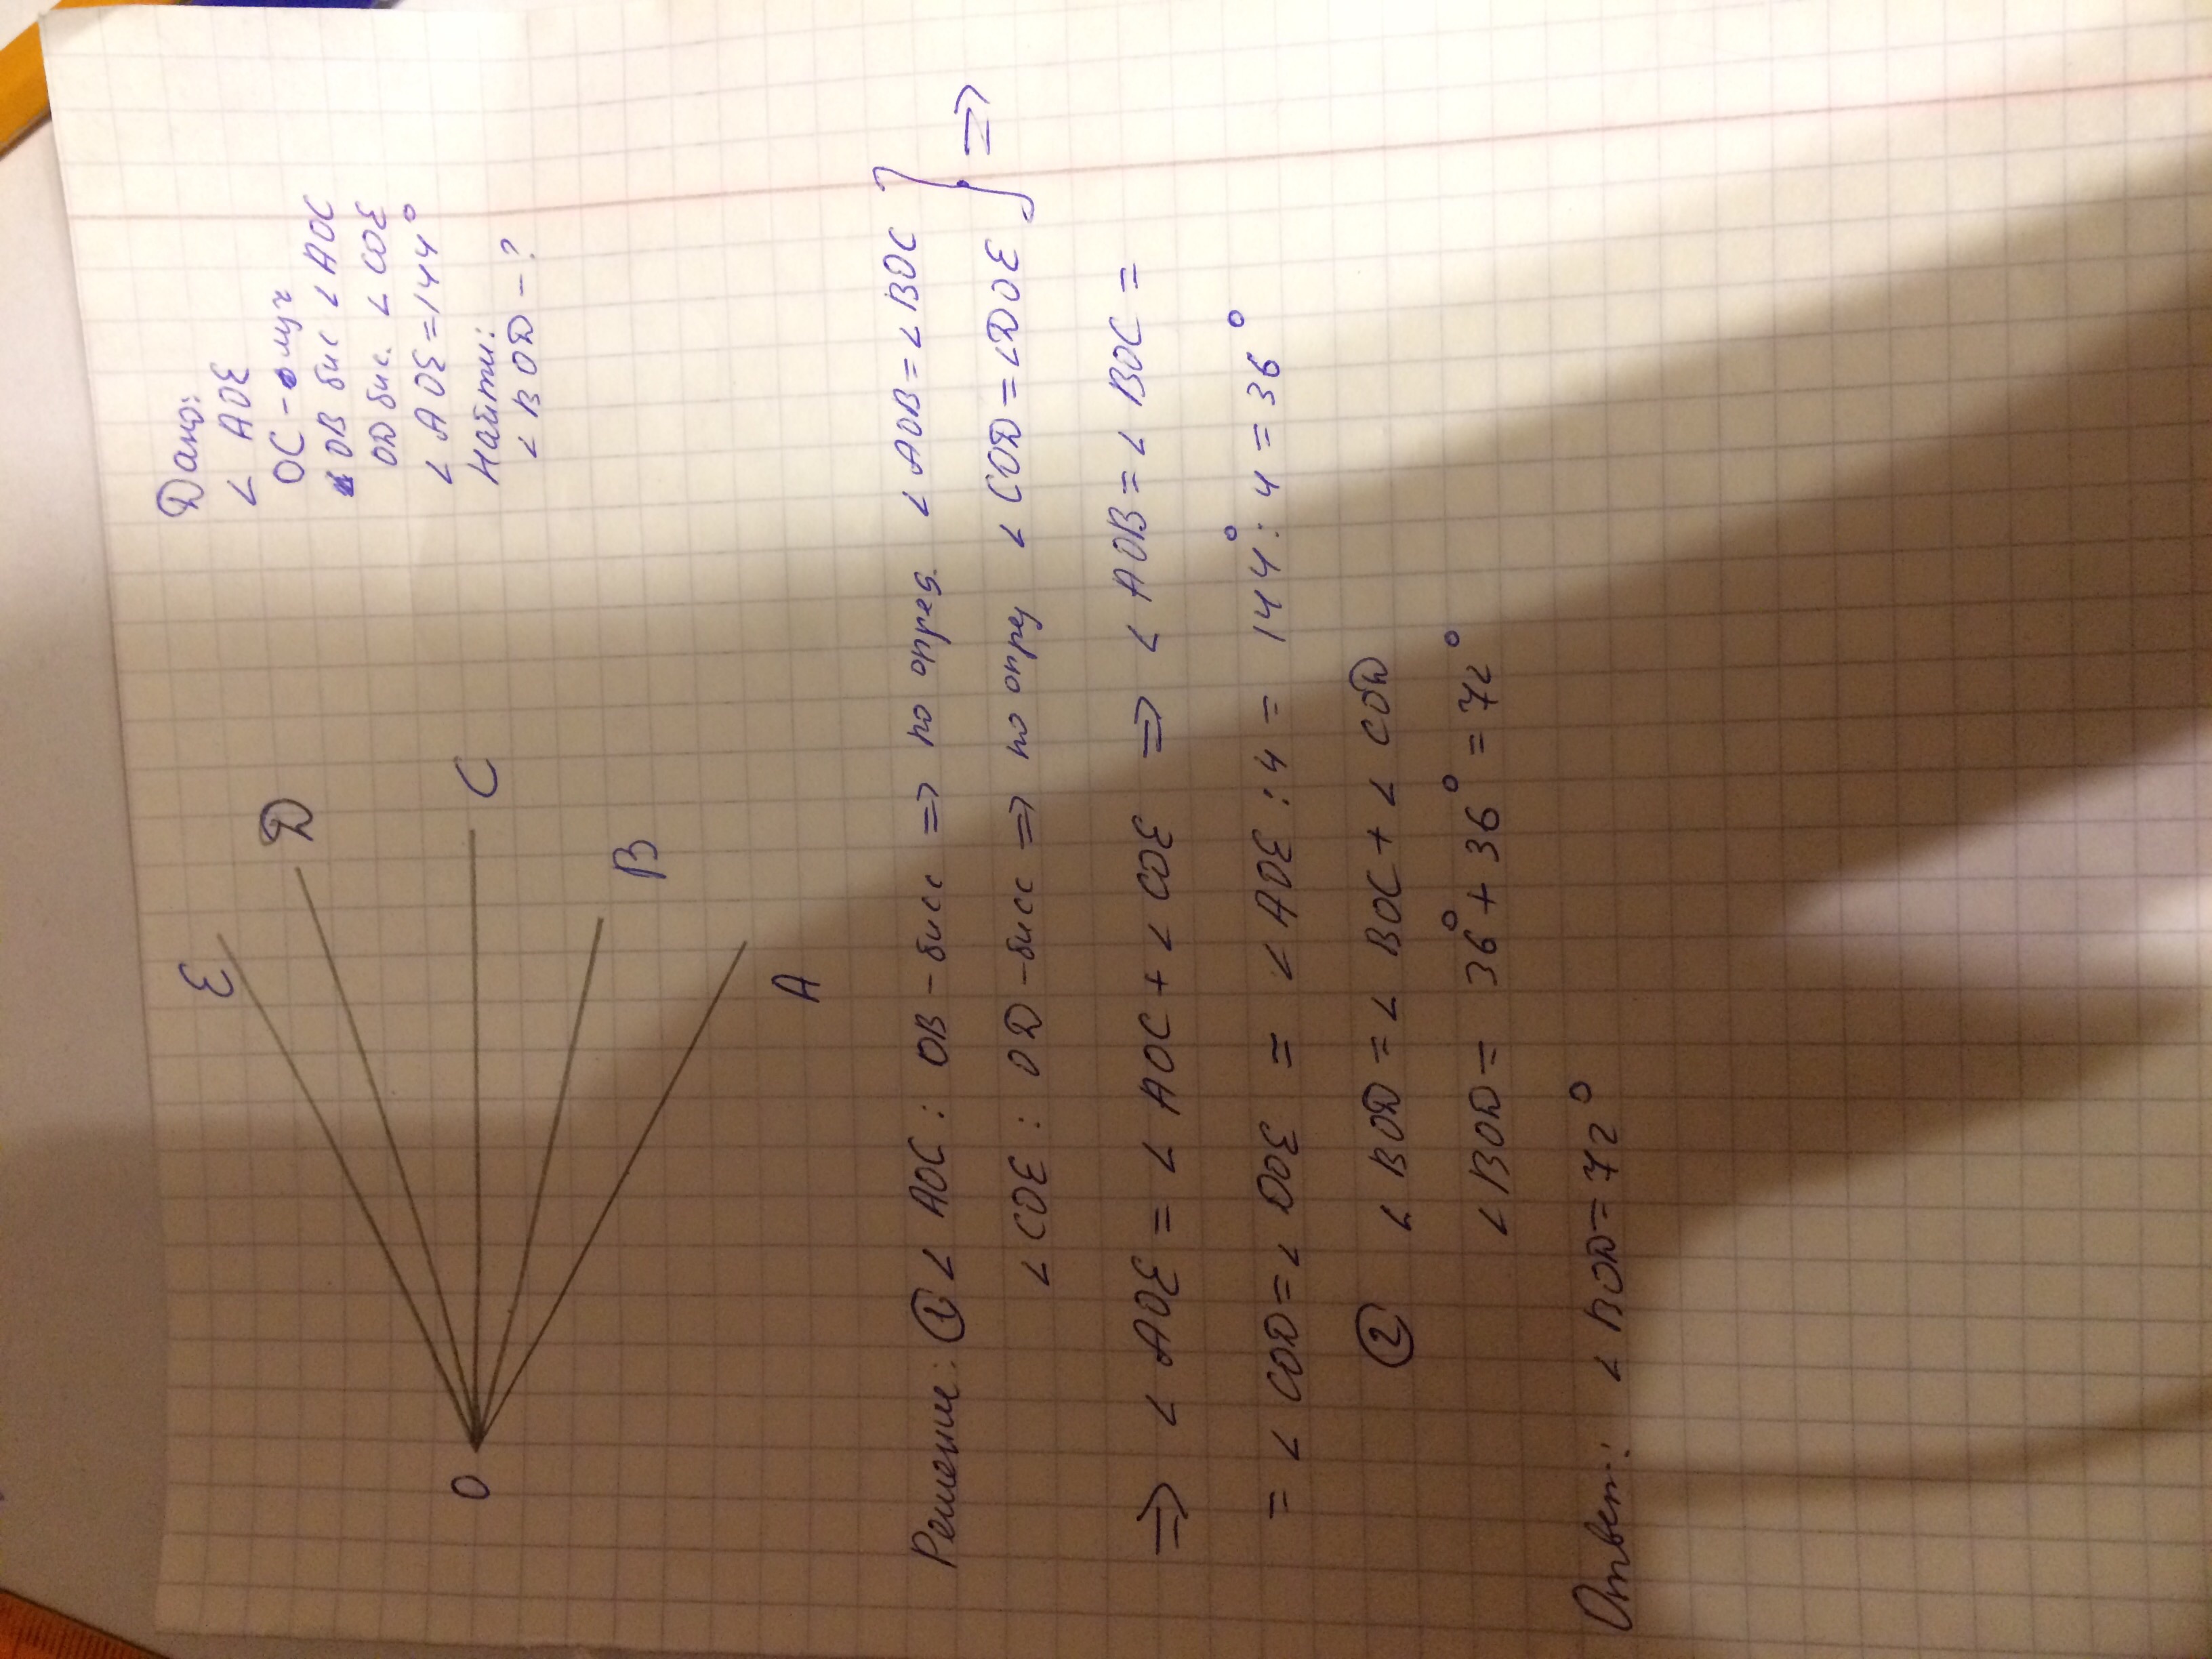 E
D
C
B
A
O
Дано:
< AOE
OC - луч
OB бис < AOC
OD бис. < COE
< AOE = 144°
Найти:
< BOD - ?
Решение: ① < AOC : OB - бисс => по опред. < AOB = < BOC } =>
< COE : OD - бисс => по опред < COD = < DOE
=> < AOE = < AOC + < COE => < AOB = < BOC =
= < COD = < DOE = < AOE : 4 = 144° : 4 = 36°
② < BOD = < BOC + < COD
< BOD = 36° + 36° = 72°
Ответ: < BOD = 72°